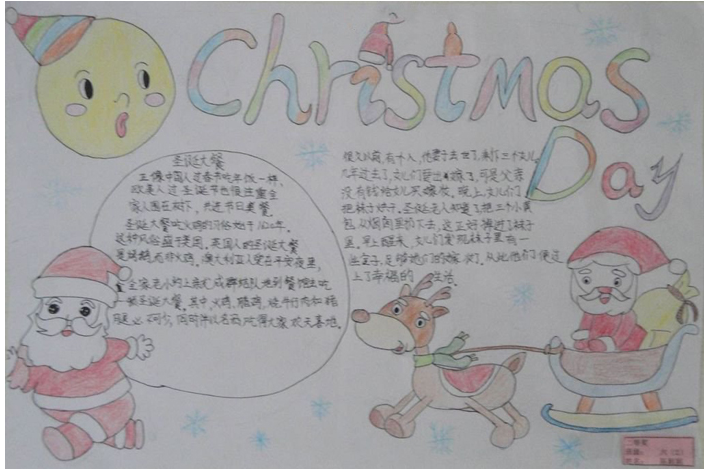 Christmas
Day
圣诞大餐
正像中国人过春节吃年饭一样,
欧美人过圣诞节也很注重全
家人围在树下,共进节日美餐
圣诞大餐吃火鸡的习俗始于1620年。
这种风俗盛于美国。英国人的圣诞大餐
是烤鹅,而非火鸡。澳大利亚人爱在平安夜里,
全家老小约上亲友成群结队地到餐馆去吃
一顿圣诞大餐。其中,火鸡、腊鸡、烧牛仔肉和猪
腿必不可少,同时伴以名酒,吃得大家欢天喜地。
很久以前,有个人,他妻子去世了,来下三个女儿。
几年过去了,女儿们要出嫁了,可是父亲
没有钱给女儿买嫁妆,晚上,女儿们
把袜子烘干。圣诞老人知道了,把三个小黄
包从烟囱里扔下去,这正好掉进了袜子
里。早上醒来,女儿们发现袜子里有一
些金子,足够她们的嫁妆了。从此他们便过
上了幸福的生活。
二等奖
班级: 六(2)